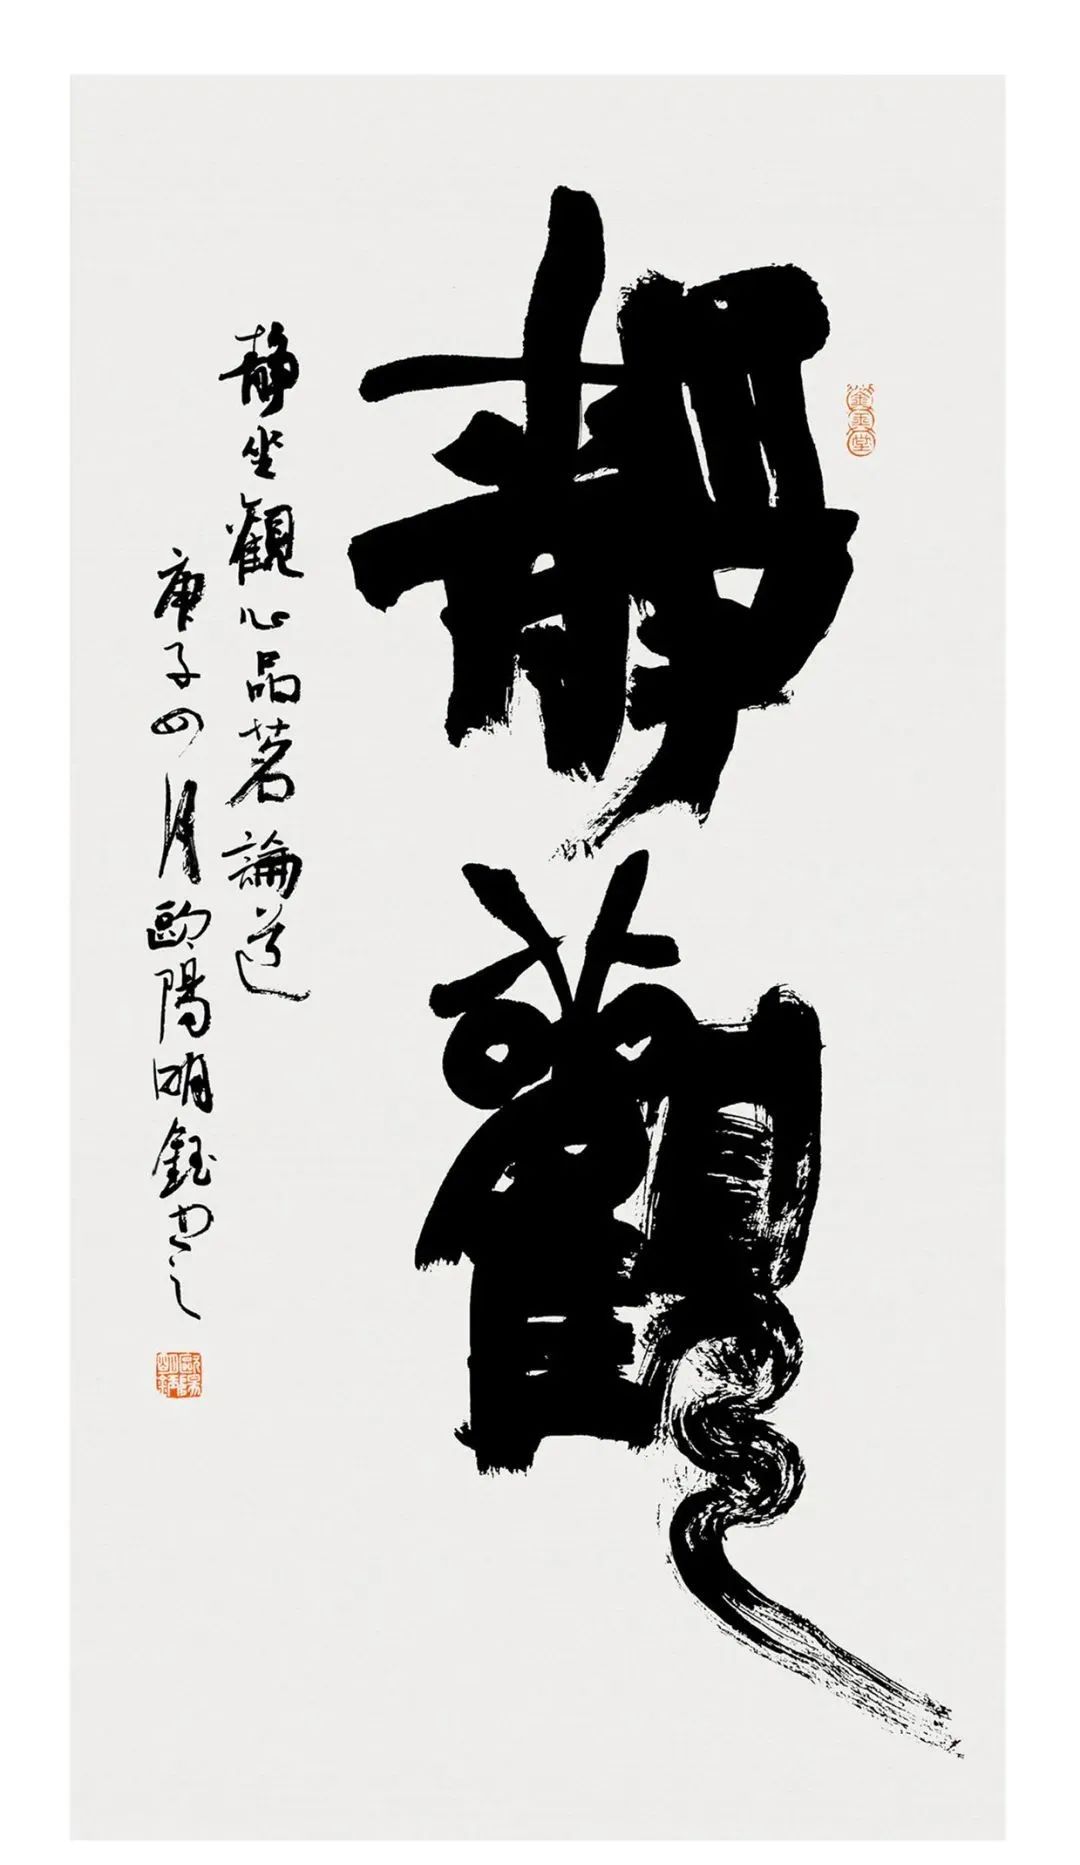 靜觀
靜坐觀心品茗論道
庚子四月歐陽明鈺書之
歐陽明鈺